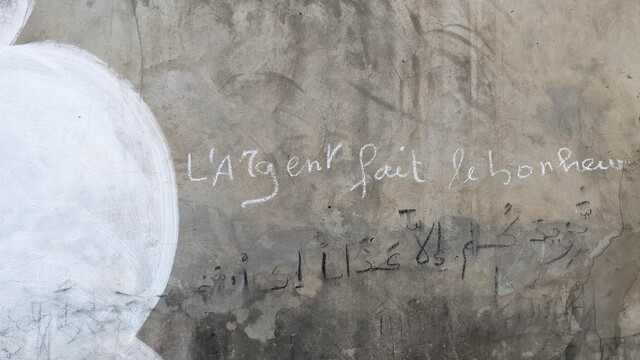 L'Argent fait le bonheur
نَّزِيدَ كُمْ إِلاَّ عَذَابًا